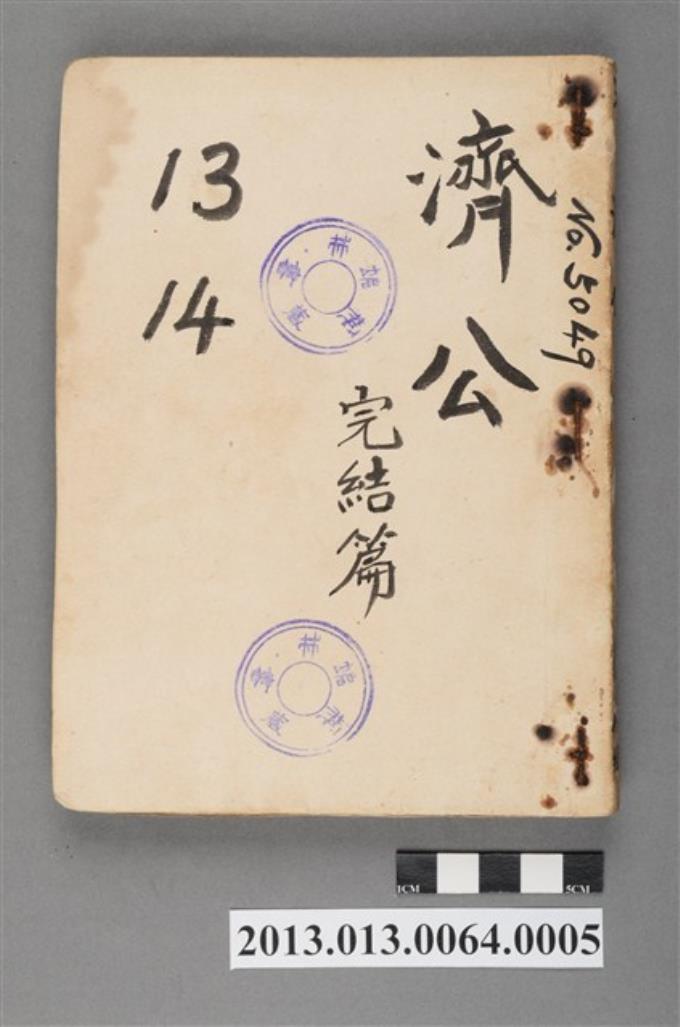 濟公
No. 5049
完結篇
13
14
1CM
5CM
2013.013.0064.0005